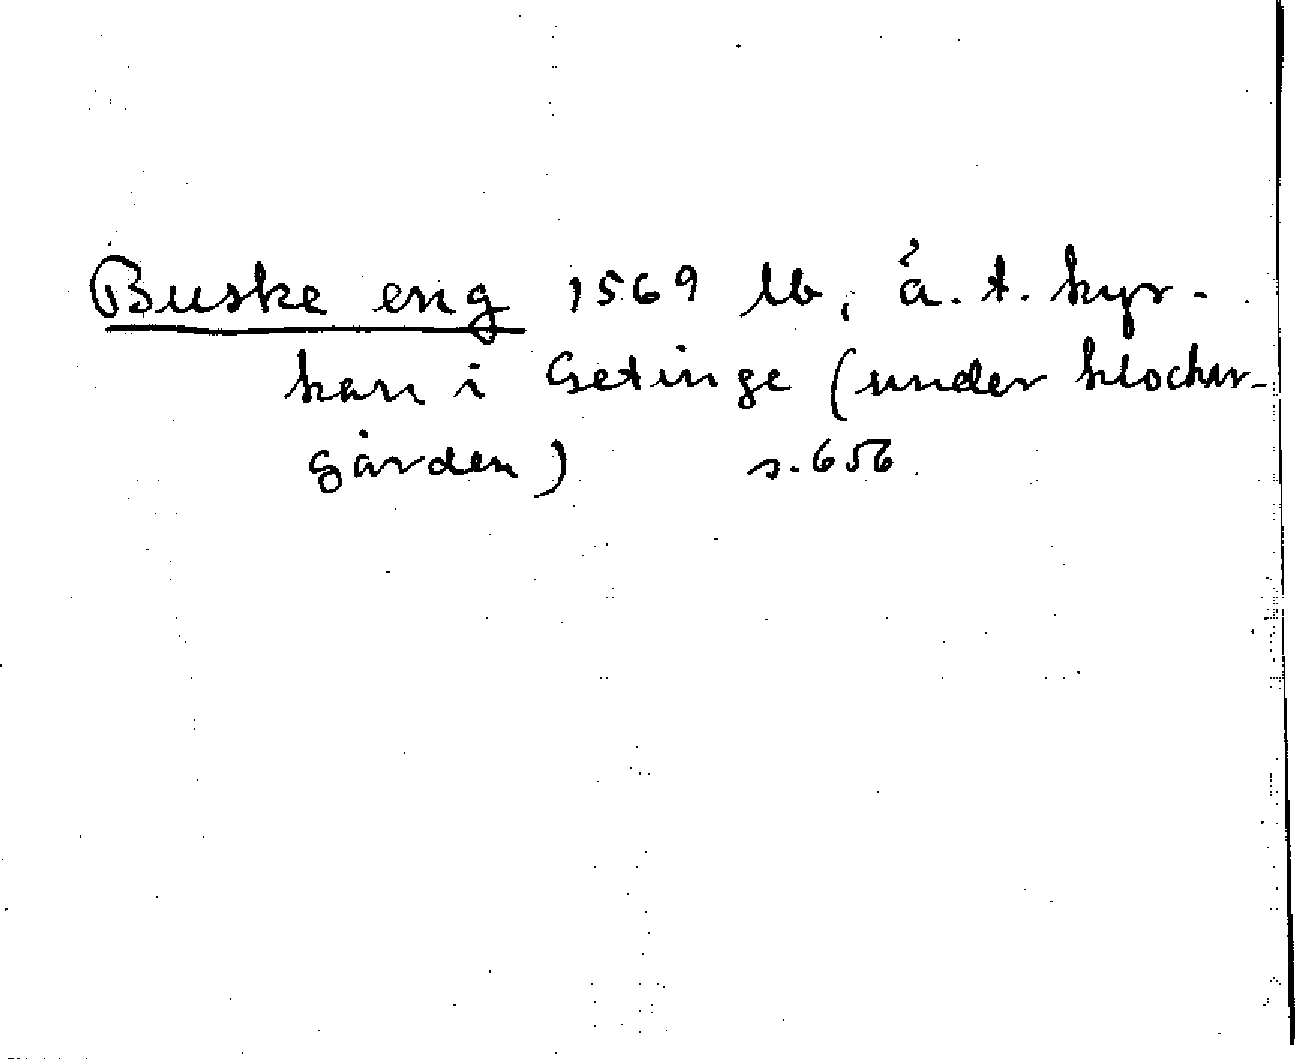 Buske eng 1569 lb, ä. t. kyr-
kan i Getinge (under klockar-
gården) s. 656